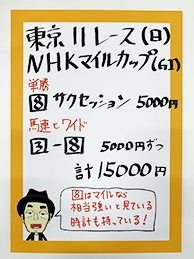 東京11レース(日)
NHKマイルカップ(GI)
単勝
8 サクセッション 5000円
馬連とワイド
3-8 5000円ずつ
計15000円
8はマイルなら
相当強いと見ている
時計も持っている!